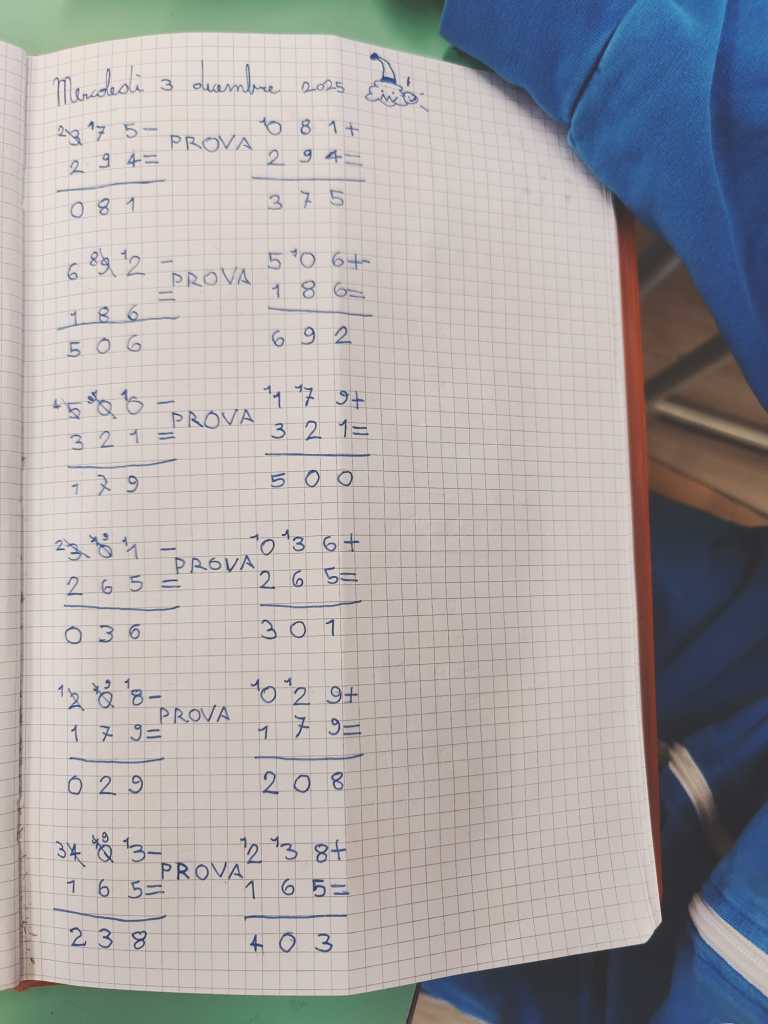 Mercoledì 3 dicembre 2025
2 3 1 7 5 - PROVA 1 0 8 1 +
2 9 4 = 2 9 4 =
0 8 1 3 7 5
6 8 9 1 2 - PROVA 5 1 0 6 +
1 8 6 = 1 8 6 =
5 0 6 6 9 2
4 5 9 0 1 0 - PROVA 1 1 1 7 9 +
3 2 1 = 3 2 1 =
1 7 9 5 0 0
2 3 1 9 0 1 1 - PROVA 1 0 1 3 6 +
2 6 5 = 2 6 5 =
0 3 6 3 0 1
1 2 1 9 0 1 8 - PROVA 1 0 1 2 9 +
1 7 9 = 1 7 9 =
0 2 9 2 0 8
3 4 1 9 0 1 3 - PROVA 1 2 1 3 8 +
1 6 5 = 1 6 5 =
2 3 8 4 0 3